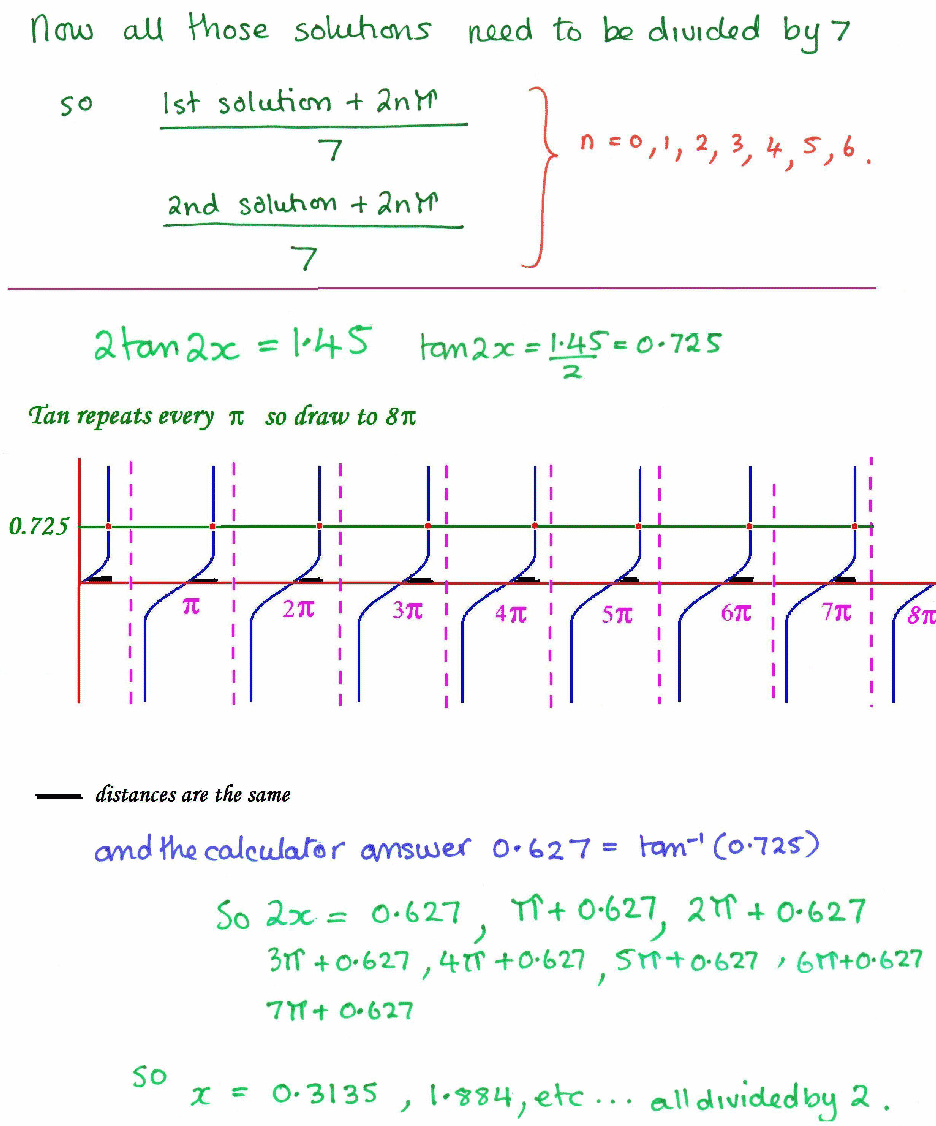 Now all those solutions need to be divided by 7
so 1st solution + 2nπ
7
n = 0, 1, 2, 3, 4, 5, 6.
2nd solution + 2nπ
7
2tan2x = 1.45 tan2x = 1.45/2 = 0.725
Tan repeats every π so draw to 8π
0.725
π 2π 3π 4π 5π 6π 7π 8π
distances are the same
and the calculator answer 0.627 = tan⁻¹(0.725)
So 2x = 0.627, π + 0.627, 2π + 0.627
3π + 0.627, 4π + 0.627, 5π + 0.627, 6π + 0.627
7π + 0.627
so x = 0.3135, 1.884, etc ... all divided by 2.